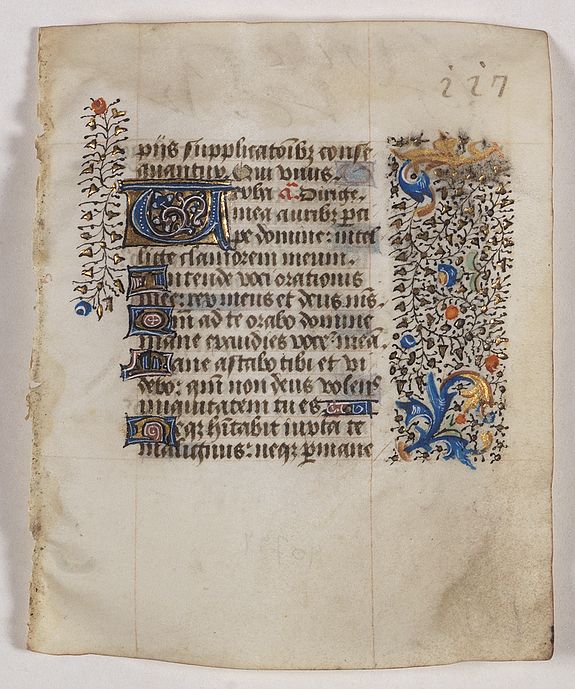 227
piis supplicatoībꝫ conse
quantur. Qui viuis
Verba ā. Dirige.
mea auribꝫ pe
ipe domine: intel
lige clamorem meum.
Intende voci orationis
mee: rex meus et deus m̄s.
Qm̄ ad te orabo domine
mane exaudies voce᷑ mea᷑.
Mane astabo tibi et vi
debo: qm̄ non deus volens
iniquitatem tu es
Neqꝫ hītabit iuxta te
malignus: neqꝫ ꝑmane